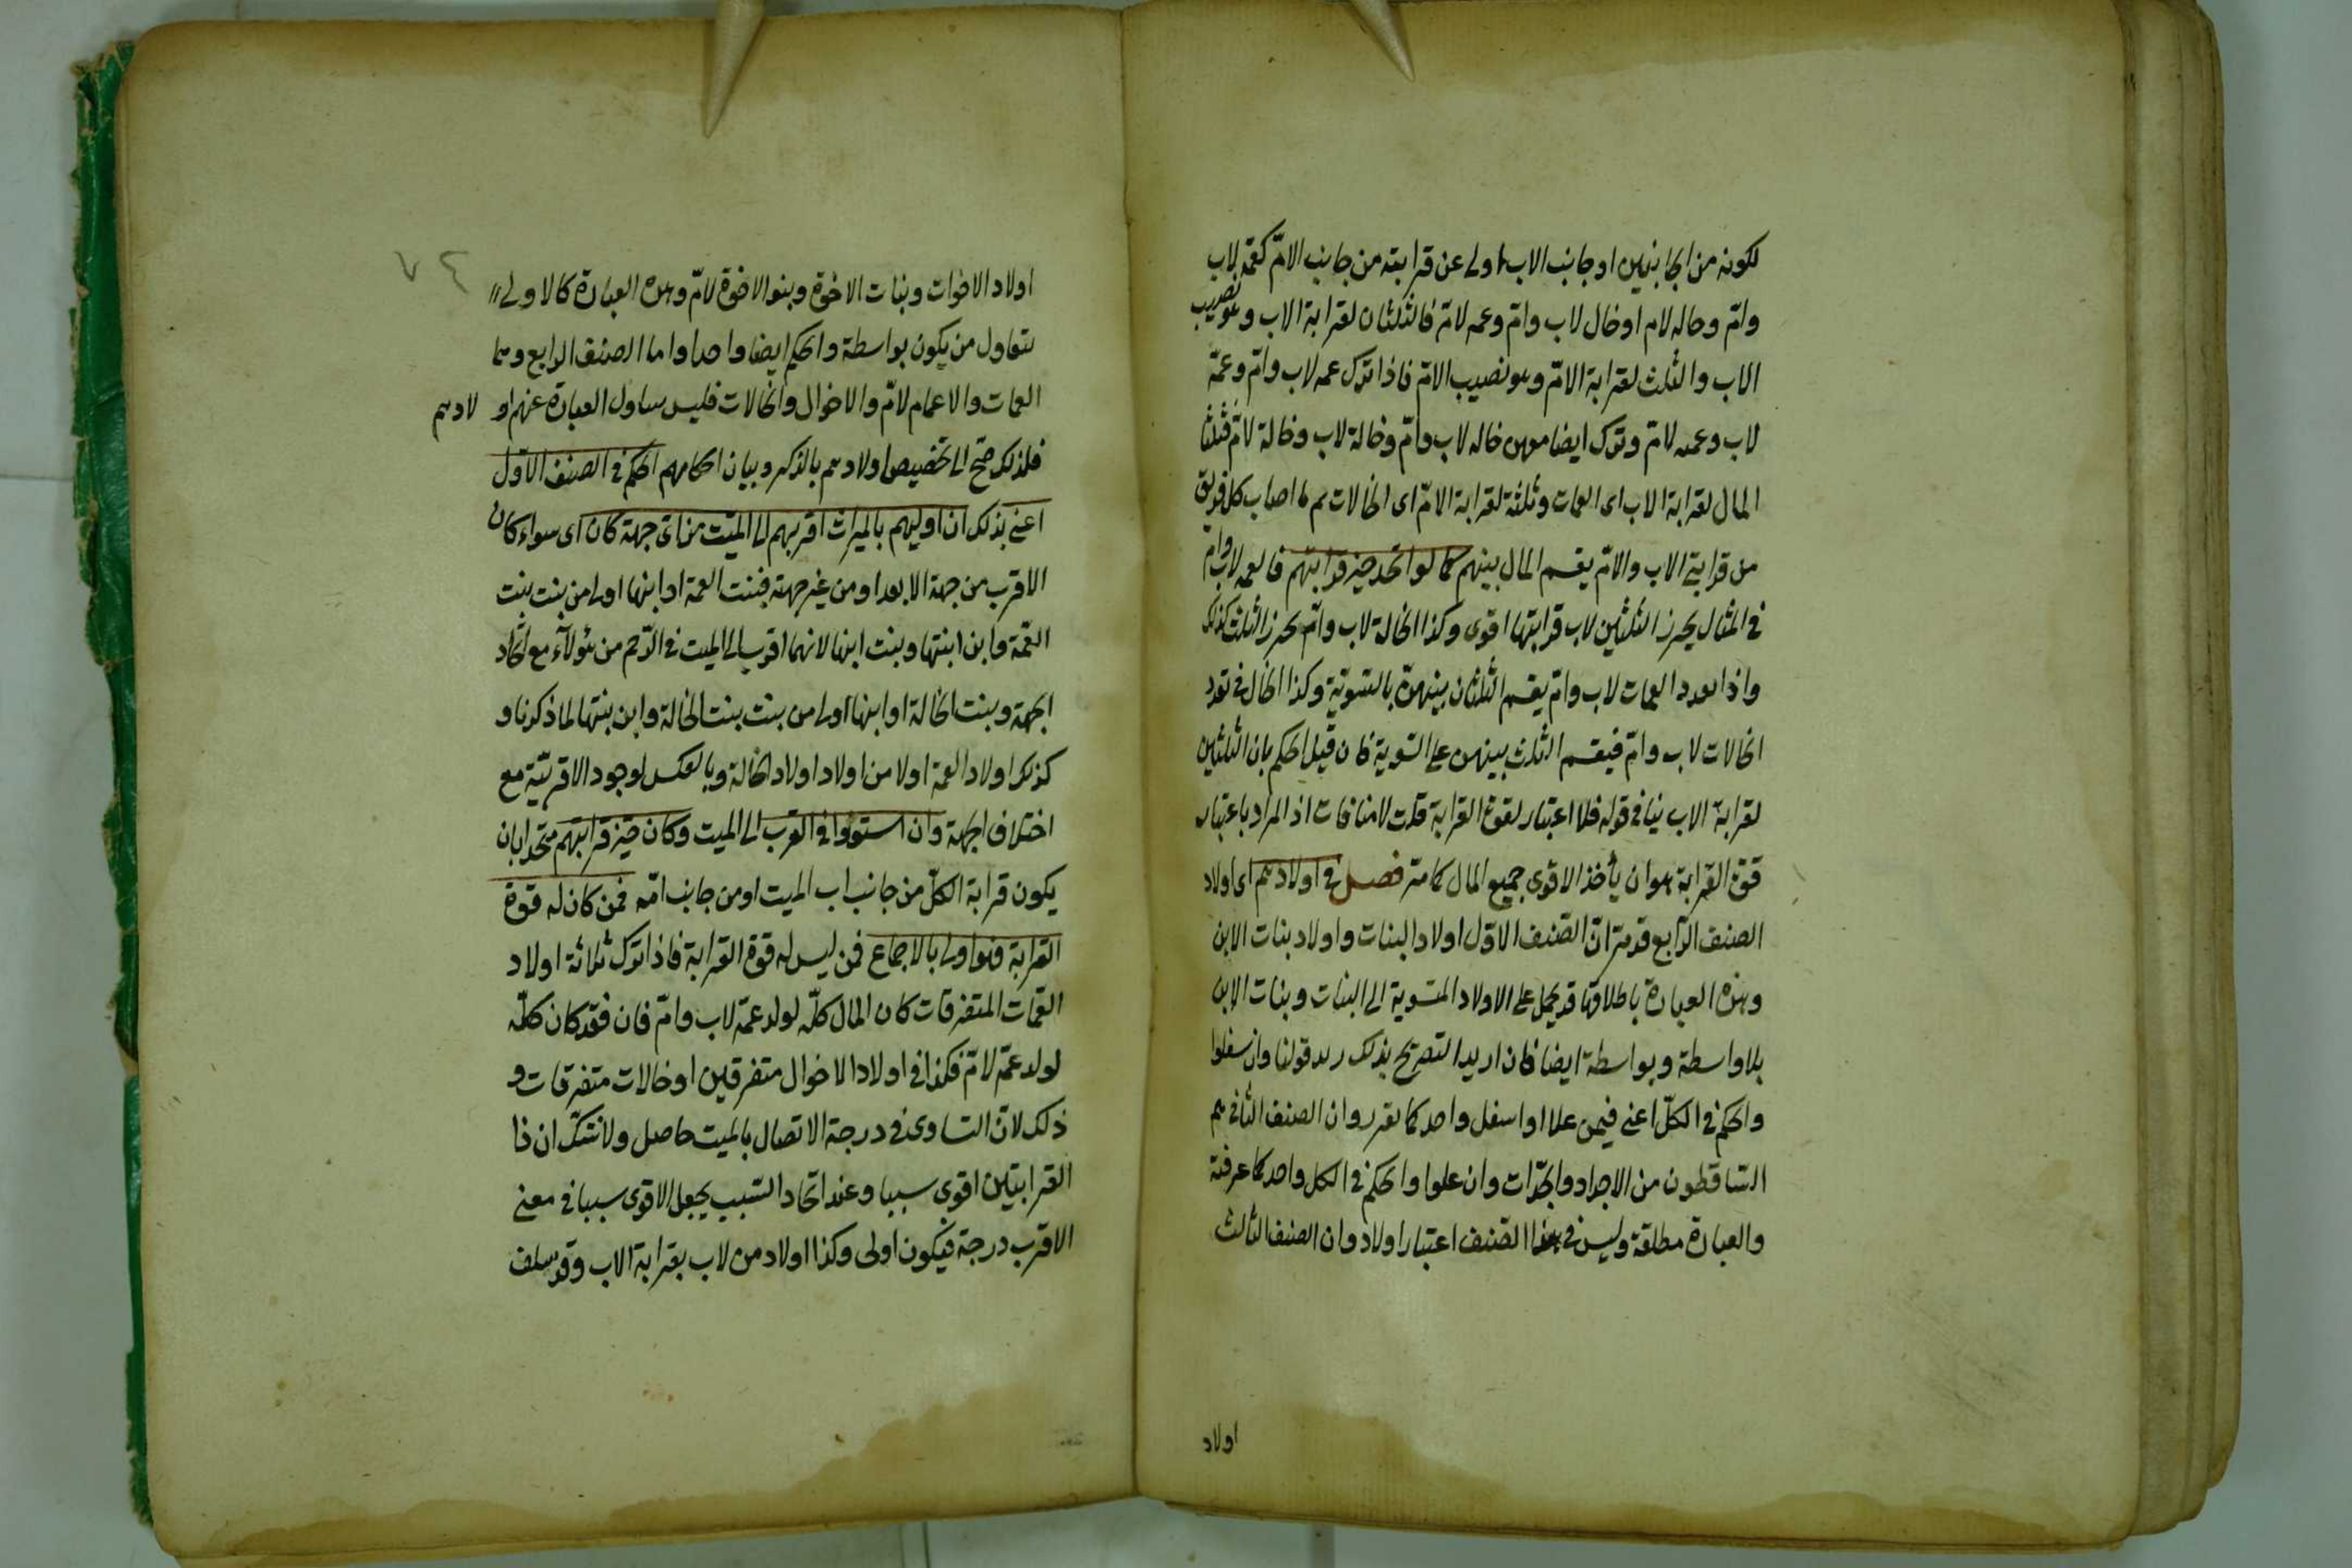 لكونه من الجانبين او جانب الاب اولى عن قرابته من جانب الامّ كعمّة لاب
وامّ وخاله لام او خال لاب وامّ وعمه لامّ فالثلثان لقرابة الاب وهو نصيب
الاب والثلث لقرابة الامّ وهو نصيب الامّ فاذا ترك عمه لاب وامّ وعمّة
لاب وعمه لامّ وترك ايضا معهن خاله لاب وامّ وخالة لاب وخالة لامّ فثلثا
المال لقرابة الاب اى العمات وثلثه لقرابة الامّ اى الخالات ثم ما اصاب كل فريق
من قرابتى الاب والامّ يقسم المال بينهم كما لو اتحد حيز قرابتهم فالعمه لاب وام
فى المثال يحرز الثلثين لاب قرابتها اقوى وكذا الخالة لاب وامّ يحرز الثلث كذلك
واذا تعدد العمات لاب وامّ يقسم الثلثان بينهنّ بالتسويّة وكذا الحال فى تعدد
الخالات لاب وامّ فيقسم الثلث بينهن على السّوية فان قيل الحكم بان الثلثين
لقرابة الاب ينافى قوله فلا اعتبار لقوة القرابة قلت لا منافات اذ المراد باعتبار
قوّة القرابة هو ان يأخذ الاقوى جميع المال كما مرّ فصل فى اولادهم اى اولاد
الصنف الرّابع قد مرّ انّ الصّنف الاوّل اولاد البنات واولاد بنات الابن
وهذه العبارة باطلاقها قد يحمل على الاولاد المنسوبة الى البنات وبنات الابن
بلا واسطة وبواسطة ايضا فان اريد التصريح بذلك زيد قولنا وان سفلوا
والحكم فى الكلّ اعنى فيمن علا او اسفل واحد كما تقرر وان الصنف الثانى هم
السّاقطون من الاجداد والجدّات وان علوا والحكم فى الكل واحد كما عرفته
والعبارة مطلقة وليس فى هذا الصّنف اعتبار اولاد وان الصنف الثالث
اولاد
٧٤
اولاد الاخوات وبنات الاخوة وبنو الاخوة لامّ وهذه العبارة كالاولى
تتناول من يكون بواسطة والحكم ايضا واحد واما الصنف الرابع وهما
العمات والاعمام لامّ والاخوال والخالات فليس يتناول العبارة عنهم او لادهم
فلذلك صحّ الى تخصيص اولادهم بالذكر وبيان احكامهم الحكم فى الصنف الاوّل
اعنى بذلك ان اوليهم بالميراث اقربهم الى الميّت من اىّ جهة كان اى سواء كان
الاقرب من جهة الابعد او من غير جهته فبنت العمة او ابنها اولى من بنت بنت
العمّة وابن ابنتها وبنت ابنها لانهما اقرب الى الميت فى الرّحم من هؤلآء مع اتّحاد
الجهة وبنت الخالة او ابنها اولى من بنت بنت الخالة وابن بنتها لما ذكرنا و
كذلك اولاد العمة اولا من اولاد اولاد الخالة وبالعكس لوجود الاقربيّة مع
اختلاف الجهة وان استووا فى القرب الى الميت وكان حيّز قرابتهم متحدا بان
يكون قرابة الكلّ من جانب اب الميت او من جانب امّه فمن كان له قوة
القرابة فهو اولى بالاجماع فمن ليس له قوة القرابة فاذا ترك ثلاثة اولاد
العمّات المتفرقات كان المال كلّه لولد عمّة لاب وامّ فان فقد كان كلّه
لولد عمّة لامّ فكذا فى اولاد الاخوال متفرقين او خالات متفرقات و
ذلك لانّ التساوى فى درجة الاتصال بالميت حاصل ولا شكّ ان ذا
القرابتين اقوى سببا وعند اتحاد السّبب يجعل الاقوى سببا فى معنى
الاقرب درجة فيكون اولى وكذا اولاد من لاب بقرابة الاب وقد سلف